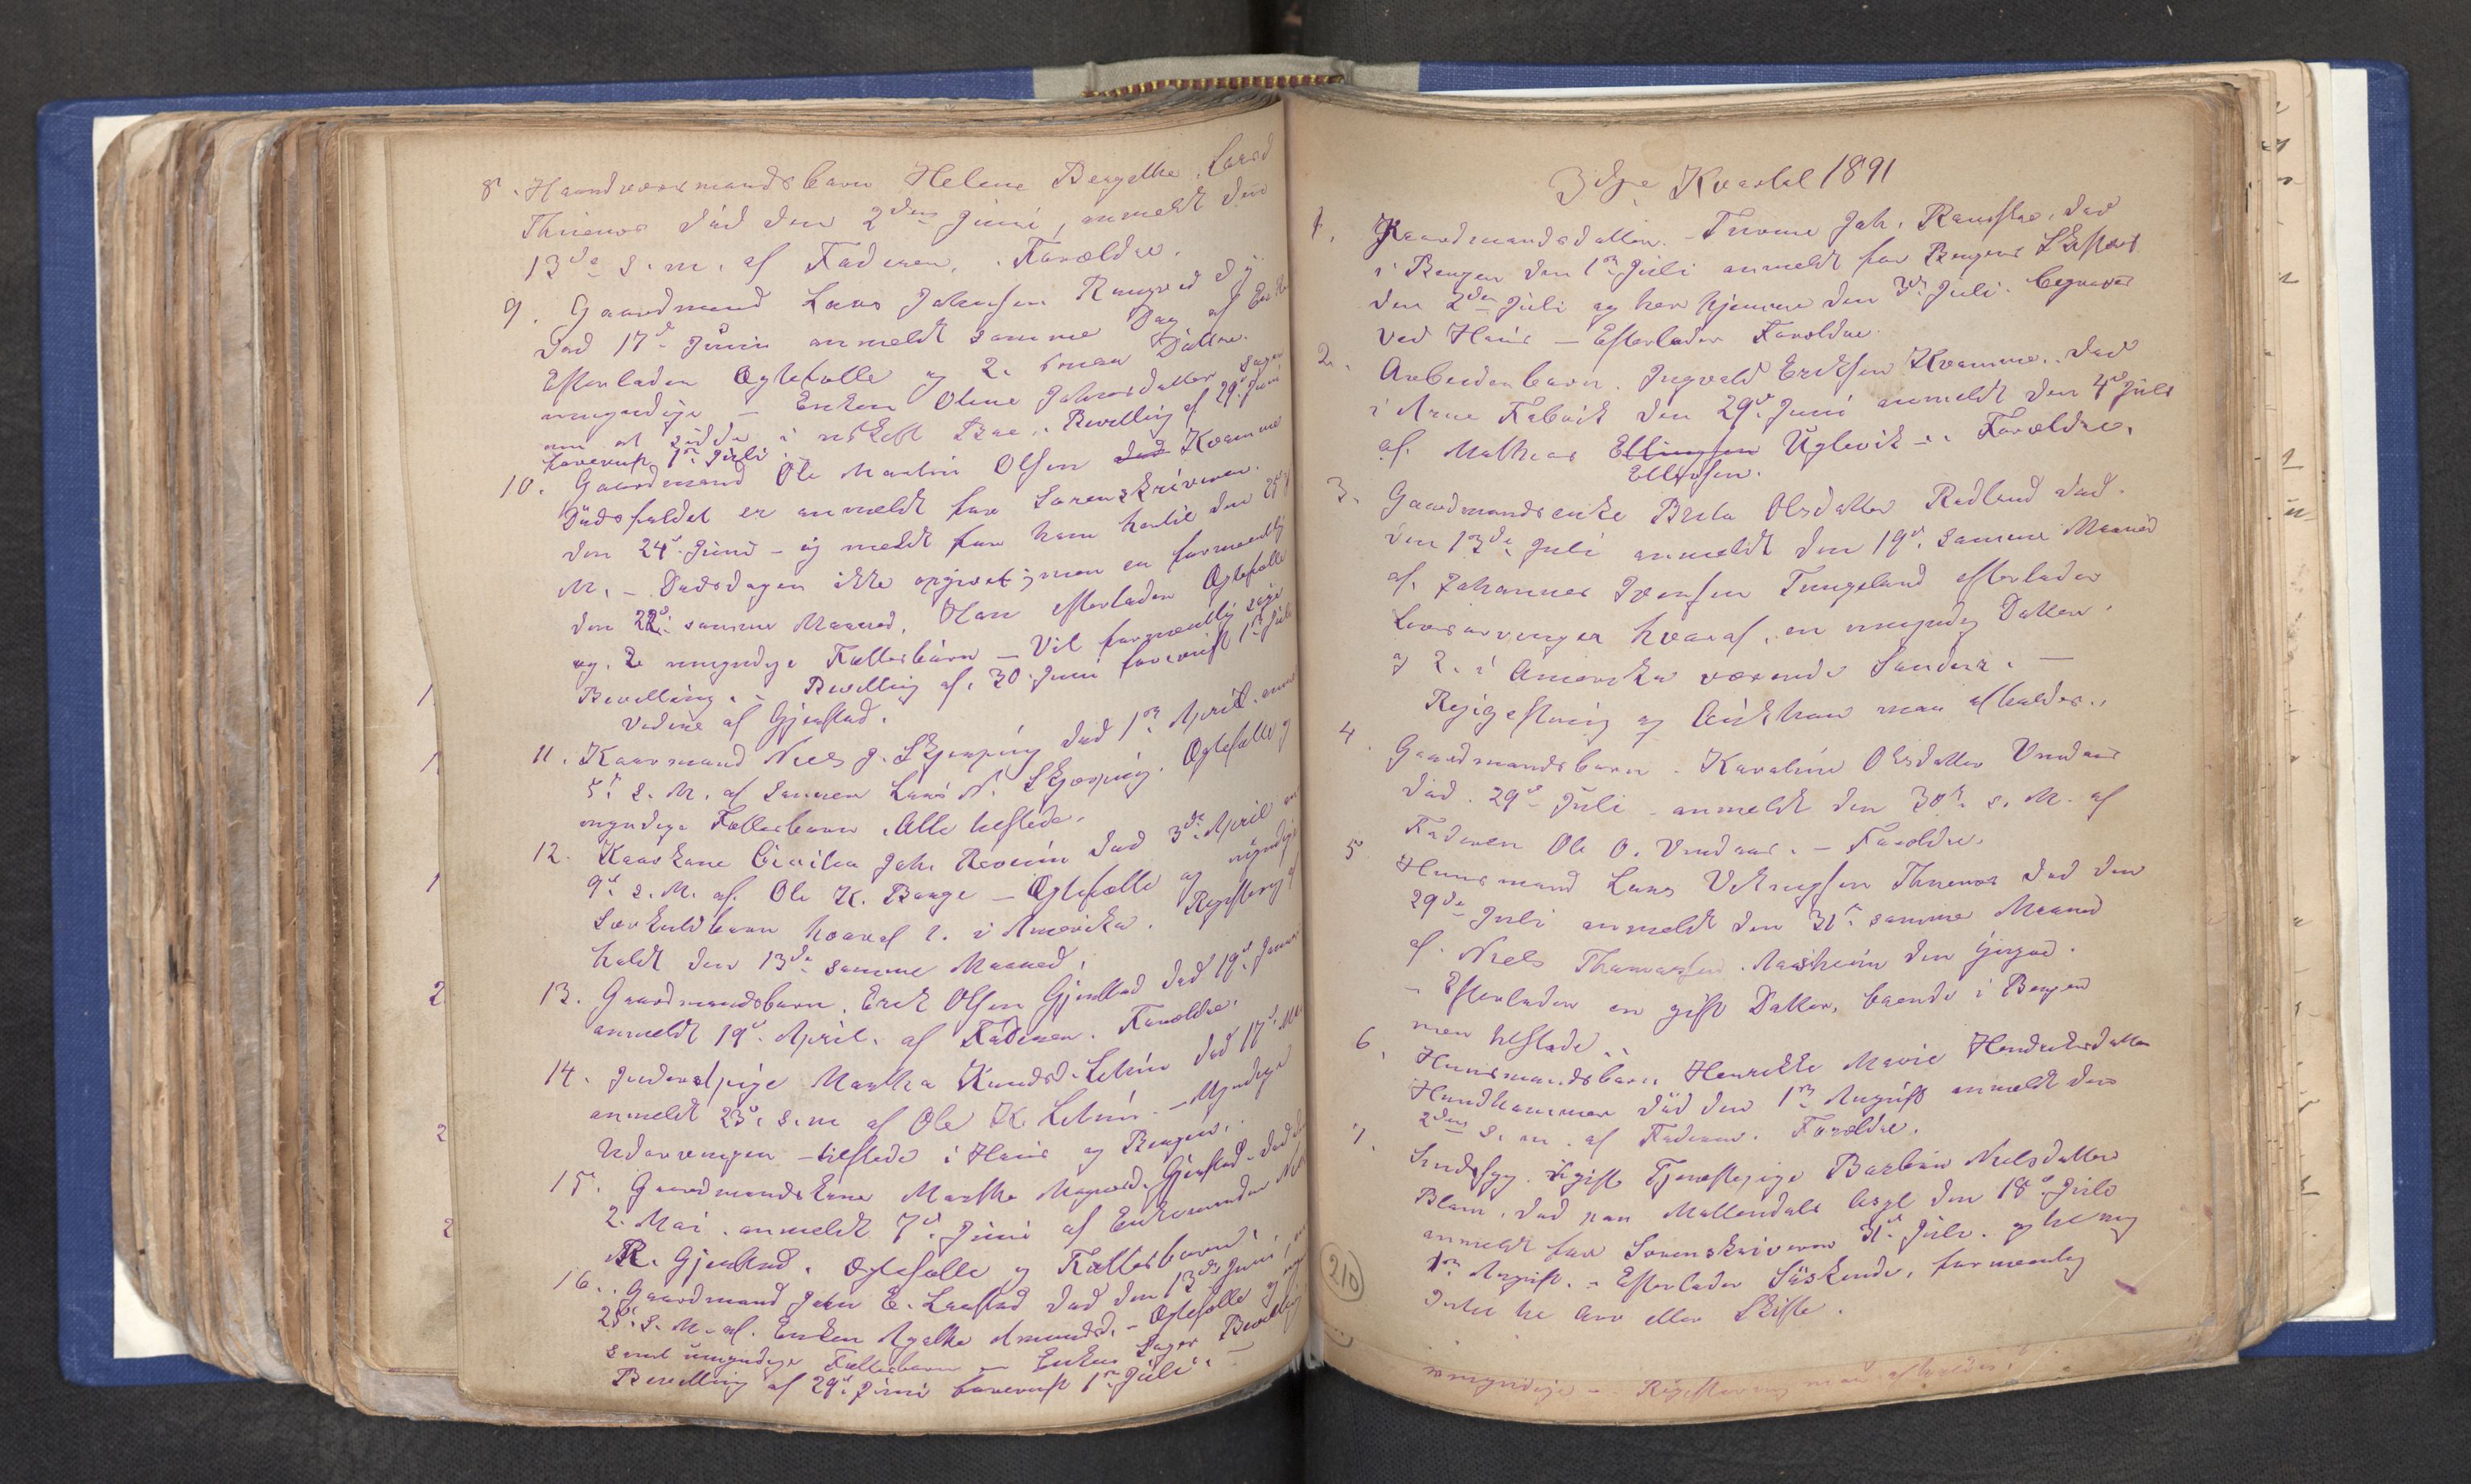 8. Haandværsmandsbarn Helene Bergitha Larsd
Thunes død den 2den Juni, anmeldt den
13de s. m. af Faderen. Forældre.
9. Gaardmand Lars Johnsen
død 17de Juni anmeldt samme Dag af
Efterlader Ægtefælle og 2. smaa Døttre.
umyndige – Enken Oline Johnsdatter søger
om at sidde i uskift Bo. Bevilling af 29de Juni
foreviist 1ste Juli.
10. Gaardmand Ole Martin Olsen død Kvamme
Dødsfaldet er anmeldt for Sorenskriveren.
den 24de Juni – og meldt for ham hertil den 25de
M. – Dødsdagen ikke opgivet; men er formentlig
den 22de samme Maaned. Han efterlader Ægtefælle
og 2 umyndige Fællesbørn – Vil formentlig søge
Bevilling. – Bevilling af 30 Juni foreviist 1ste Juli
af Gjerstad.
11. Kaarmand Niels J. Skjerping død 1ste April
5te s. M. af Sønnen Lars N. Skjerping. Ægtefælle og
myndige Fællesbørn. Alle tilstede.
12. Kaarkone Cicilia Joh. død 3de April
9de s. M. af Ole K. Bange – Ægtefælle og myndige
Særkuldbørn hvoraf 1. i Amerika. Registrering
holdt den 13de samme Maaned.
13. Gaardmandsbarn. Erik Olsen Gjerstad død 19de
anmeldt 19de April. af Faderen. Forældre.
14. Inderstpige Martha Knudsd. død 17de
anmeldt 23de s. m af Ole K. – Myndige
Udarvinger – tilstede i Haus og Bergen.
15. Gaardmandskone Martha Magnesd. Gjerstad. død
2. Mai anmeldt 7de Juni af Enkemanden
R. Gjerstad. Ægtefælle og Fællesbørn.
16. Gaardmand John E. død den 13de Juni
25de s. M. af. Enken Agathe Amundsd. – Ægtefælle og
samt umyndige Fællesbørn – Enken søger Bevilling
Bevilling af 29de Juni foreviist 1ste Juli. –
3dje Kvartal 1891
1. Gaardmandsdatter. – Joh. død
i Bergen den 1ste Juli anmeldt for Bergens Skifteret
den 2den Juli og her hjemme den 3de Juli. begraves
ved Haus – Efterlader Forældre.
2. Arbeiderbarn. Ingvald Eriksen Kvamme. død
i Arne Fabrik den 29de Juni anmeldt den 4de Juli
af. Mathias Ellingsen Uglevik – Forældre.
Ellefsen.
3. Gaardmandsenke Brita Olsdatter Redland død.
den 13de Juli anmeldt den 19de samme Maaned
af. Johannes Iversen Tungeland efterlader
Livsarvinger hvoraf. en myndig Datter.
og 2. i Amerika værende Sønner. –
Registrering og Auktion maa afholdes.
4. Gaardmandsbarn. Karoline Olsdatter Unndaas
død. 29de Juli – anmeldt den 30te s. M. af
Faderen Ole O. Unndaas. – Forældre.
5. Huusmand Lars Thunes død den
29de Juli anmeldt den 31te samme Maaned
af. Niels Thomassen. Aasheim den yngre.
– Efterlader en gift Datter, boende i Bergen
men tilstede.
6. Huusmandsbarn Henrikke Marie Hendriksdatter
Hundhammer død den 1ste August anmeldt den
2den s. m. af Faderen. Forældre.
7. Sindsyg. ugift Tjenestepige Barbra Nielsdatter
Blom. død paa Møllendals Asyl den 18de Juli
anmeldt for Sorenskriveren 31te Juli. og til mig
1ste August. – Efterlader Søskende, formentlig
Intet til Arv eller Skifte.
210
umyndige – Registrering maa afholdes.